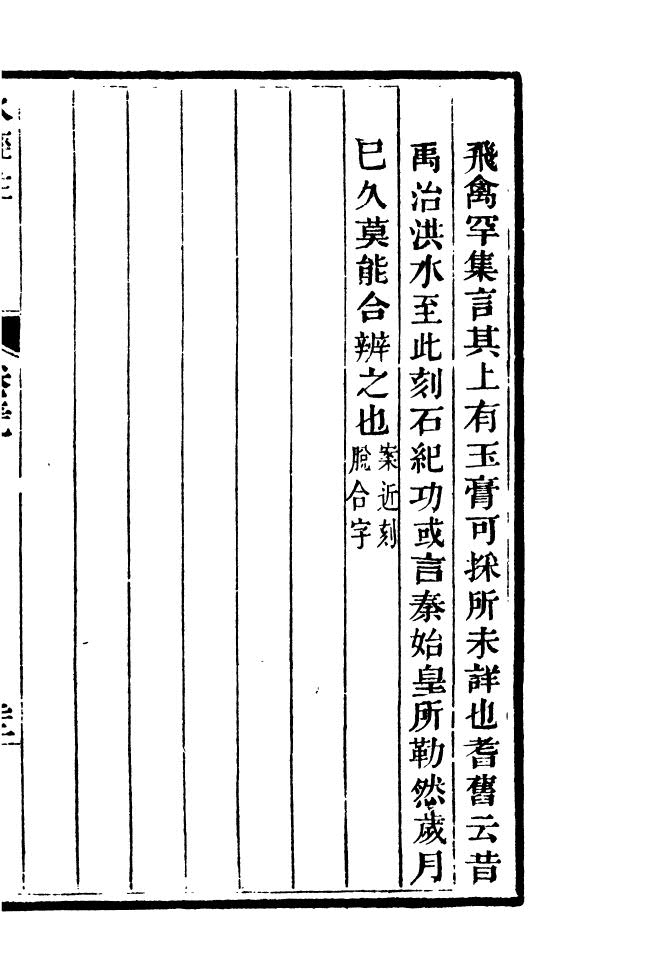 飛禽罕集言其上有玉膏可採所未詳也耆舊云昔
禹治洪水至此刻石紀功或言秦始皇所勒然歲月
已久莫能合辨之也案近刻
脫合字
水經注